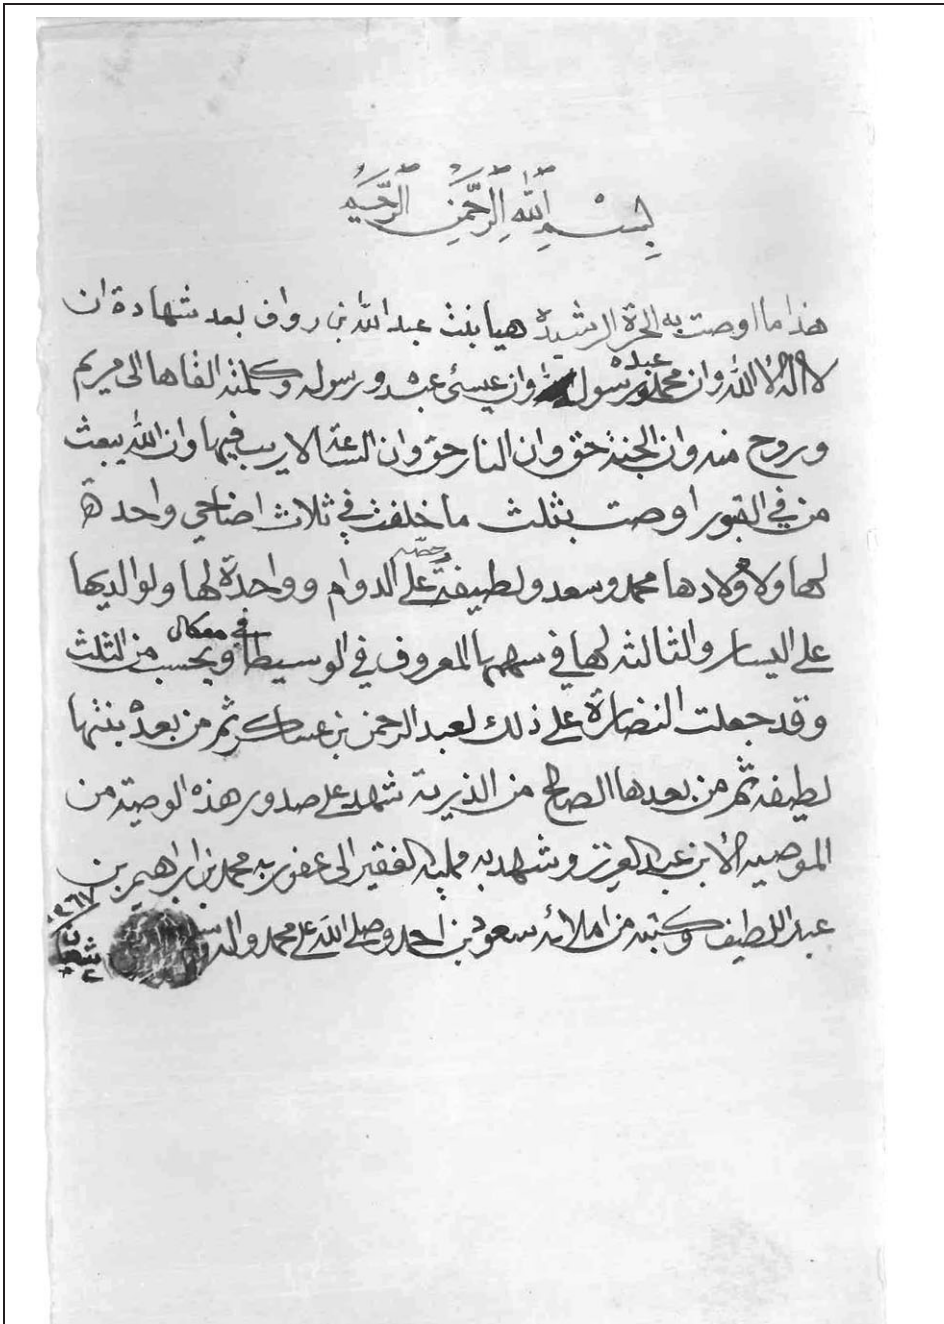 بسم الله الرحمن الرحيم
هذا ما اوصت به الحرة الرشيدة هيا بنت عبد الله بن رواف بعد شهادة ان
لا اله الا الله وان محمد عبده ورسوله وان عيسى عبده ورسوله وكلمته القاها الى مريم
وروح منه وان الجنة حق وان النار حق وان الساعة لا ريب فيها وان الله يبعث
من في القبور اوصت بثلث ما خلفت في ثلاث اضاحي واحدة
لها ولاولادها محمد وسعد ولطيفة وحصه على الدوام وواحدة لها ولوالديها
على اليسار والثالثه لها في سهمها المعروف في الوسيطا في معكال ويحسب من الثلث
وقد جعلت النضارة على ذلك لعبد الرحمن بن عساكر ثم من بعده بنتها
لطيفه ثم من بعدها الصالح من الذرية شهد على صدور هذه الوصية من
الموصيه عبد العزيز وشهد به ممليه الفقير الى عفو ربه محمد بن ابراهيم بن
عبد اللطيف وكتبه من املائه سعود بن احمد وصلى الله على محمد واله
شعبان